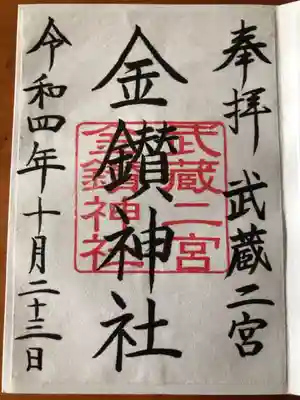 奉拝 武蔵二宮
武蔵二宮
金鑚神社
金鑚神社
令和四年十月二十二日